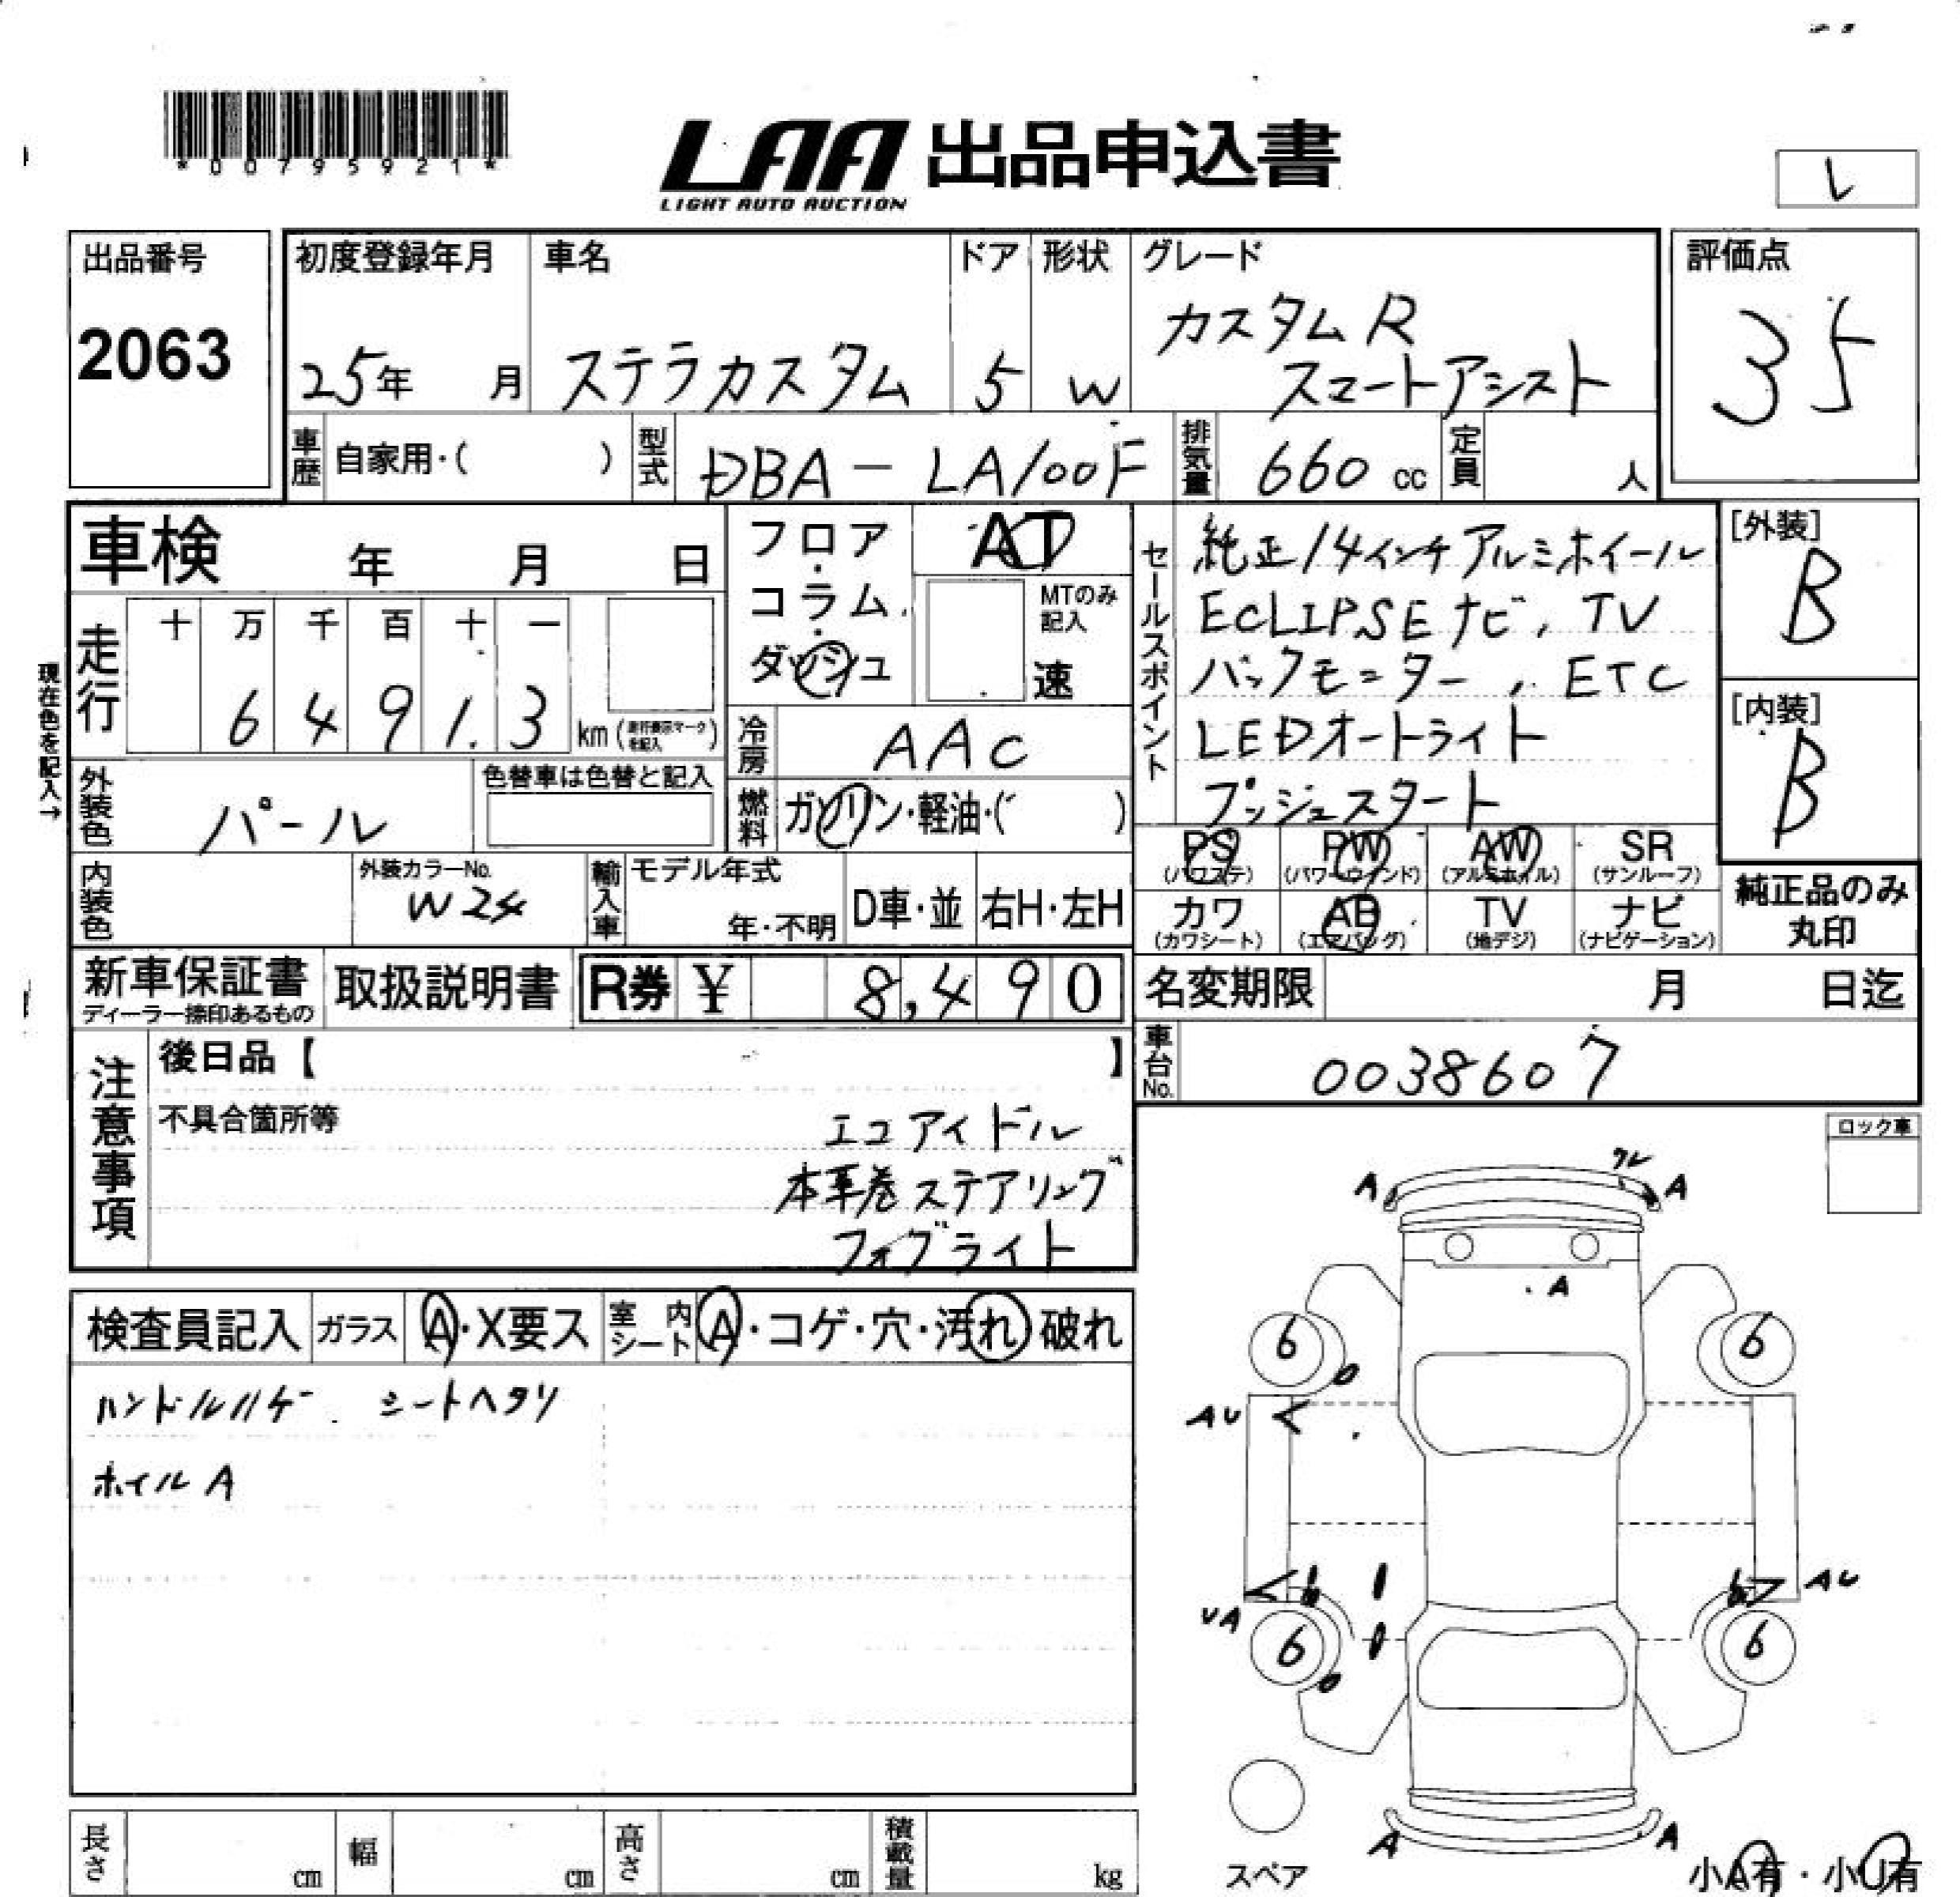 *00795921*
LAA 出品申込書
LIGHT AUTO AUCTION
L
出品番号
2063
初度登録年月
25年 月
車名
ステラカスタム
ドア
5
形状
W
グレード
カスタムR
スマートアシスト
評価点
35
車歴 自家用・( )
型式 DBA-LA100F
排気量 660 cc
定員 人
車検 年 月 日
現在色を記入→
走行 十 万 千 百 十 一
6 4 9 1. 3 km (走行表示マークを記入)
フロア・コラム・ダッシュ
AT
MTのみ記入
速
冷房 AAC
燃料 ガソリン・軽油・( )
セールスポイント
純正14インチアルミホイール
ECLIPSEナビ, TV
バックモニター, ETC
LEDオートライト
プッシュスタート
[外装]
B
[内装]
B
外装色 パール
色替車は色替と記入
内装色
外装カラーNo.
W24
輸入車 モデル年式
年・不明
D車・並
右H・左H
PS (パワステ)
PW (パワーウインド)
AW (アルミホイル)
SR (サンルーフ)
カワ (カワシート)
AB (エアバッグ)
TV (地デジ)
ナビ (ナビゲーション)
純正品のみ
丸印
新車保証書
ディーラー捺印あるもの
取扱説明書
R券 ¥ 8,490
名変期限 月 日迄
車台No. 0038607
注意事項
後日品【 】
不具合箇所等
エコアイドル
本革巻ステアリング
フォグライト
ロック車
検査員記入
ガラス A・X要ス
室内シート A・コゲ・穴・汚れ・破れ
ハンドルハゲ. シートヘタリ
ホイルA
ワレ
A
A
A
6
6
AU
AU
UA
6
6
A
A
スペア
小A有・小U有
長さ cm
幅 cm
高さ cm
積載量 kg